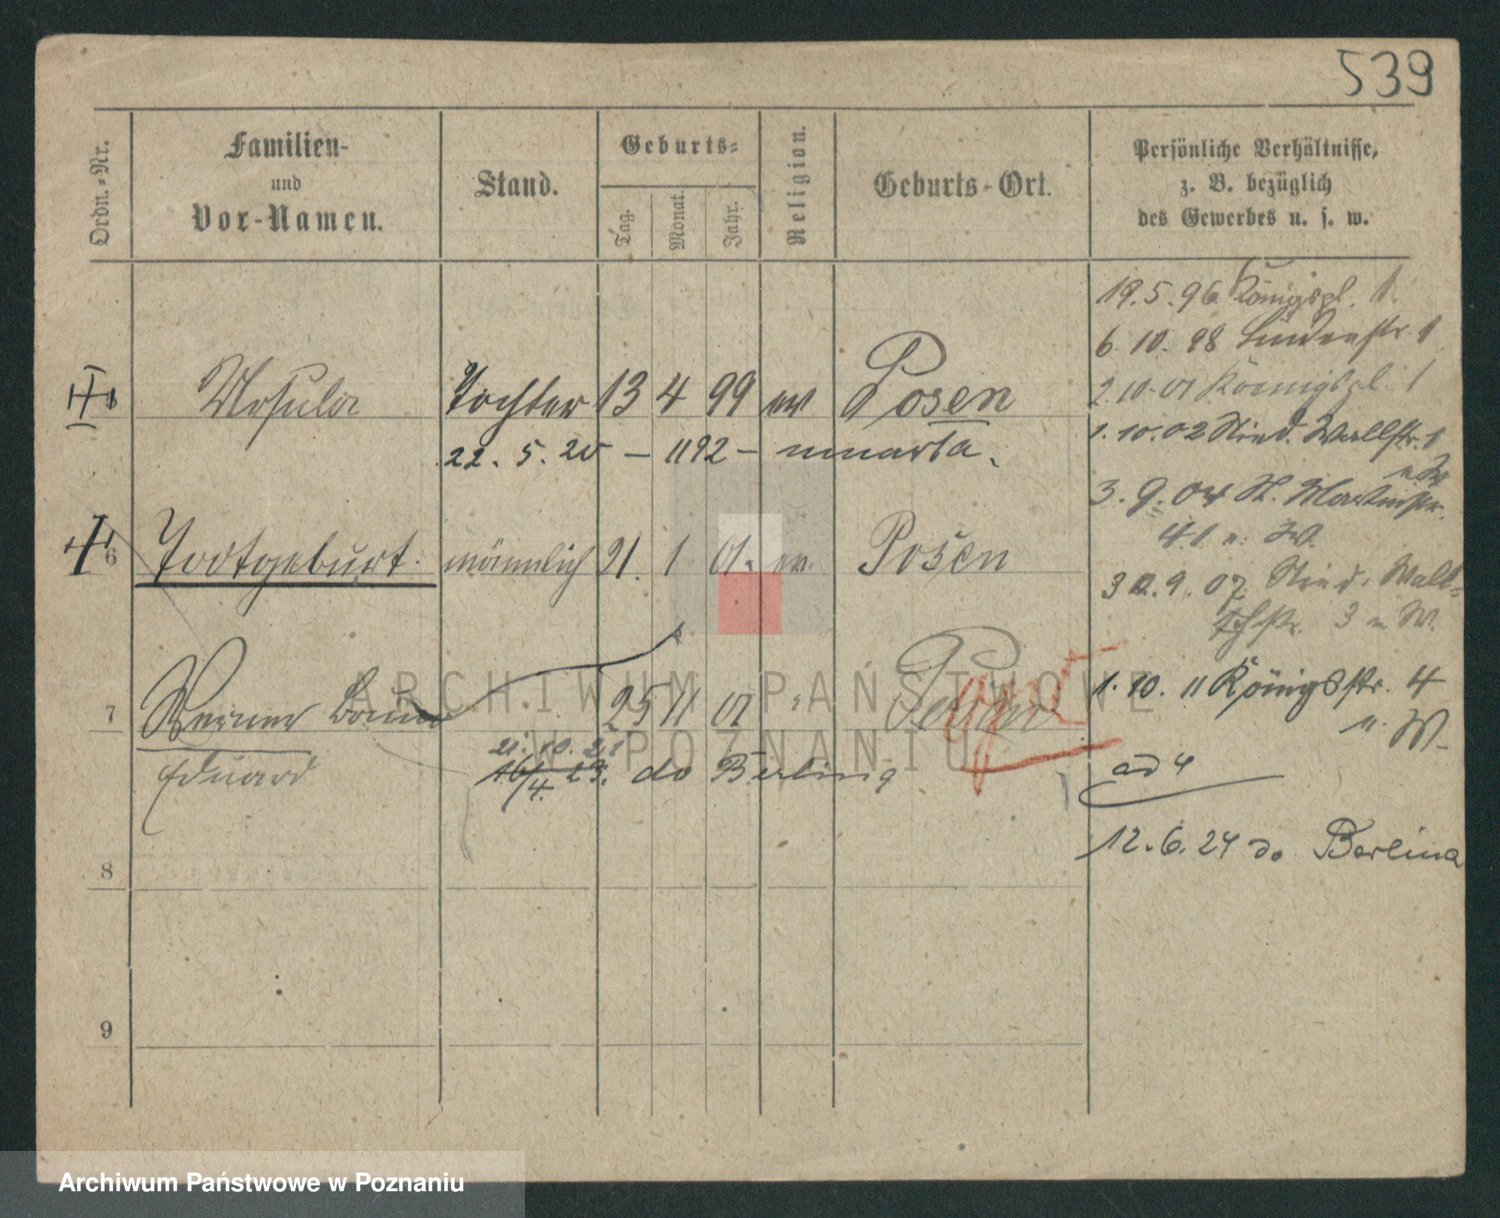 539
Ordn.-Nr.
Familien-
und
Vor-Namen.
Stand.
Geburts-
Tag.
Monat.
Jahr.
Religion.
Geburts-Ort.
Persönliche Verhältnisse,
z. B. bezüglich
des Gewerbes u. s. w.
19.5.96 Königspl. 1.
6.10.98 Lindenstr. 1
2.10.01 Koenigspl. 1
Ursula Tochter 13 4 99 ev Posen
1.10.02 Nied. Wallstr. 1
u. W
22. 5. 20 – 1192 – umarła.
3.9.04 St. Martinstr.
41 u. W.
6 Todtgeburt. männlich 21. 1 01. ev. Posen
30.9.07 Nied. Wall-
str. 3 u W.
1.10.11 Königsstr. 4
u. W.
7 Werner 25 11 01
Eduard
21. 10. 21
16/4. 23. do Berlina
ad 4
12.6.24 do Berlina
8
9
ARCHIWUM PAŃSTWOWE
W POZNANIU
Archiwum Państwowe w Poznaniu